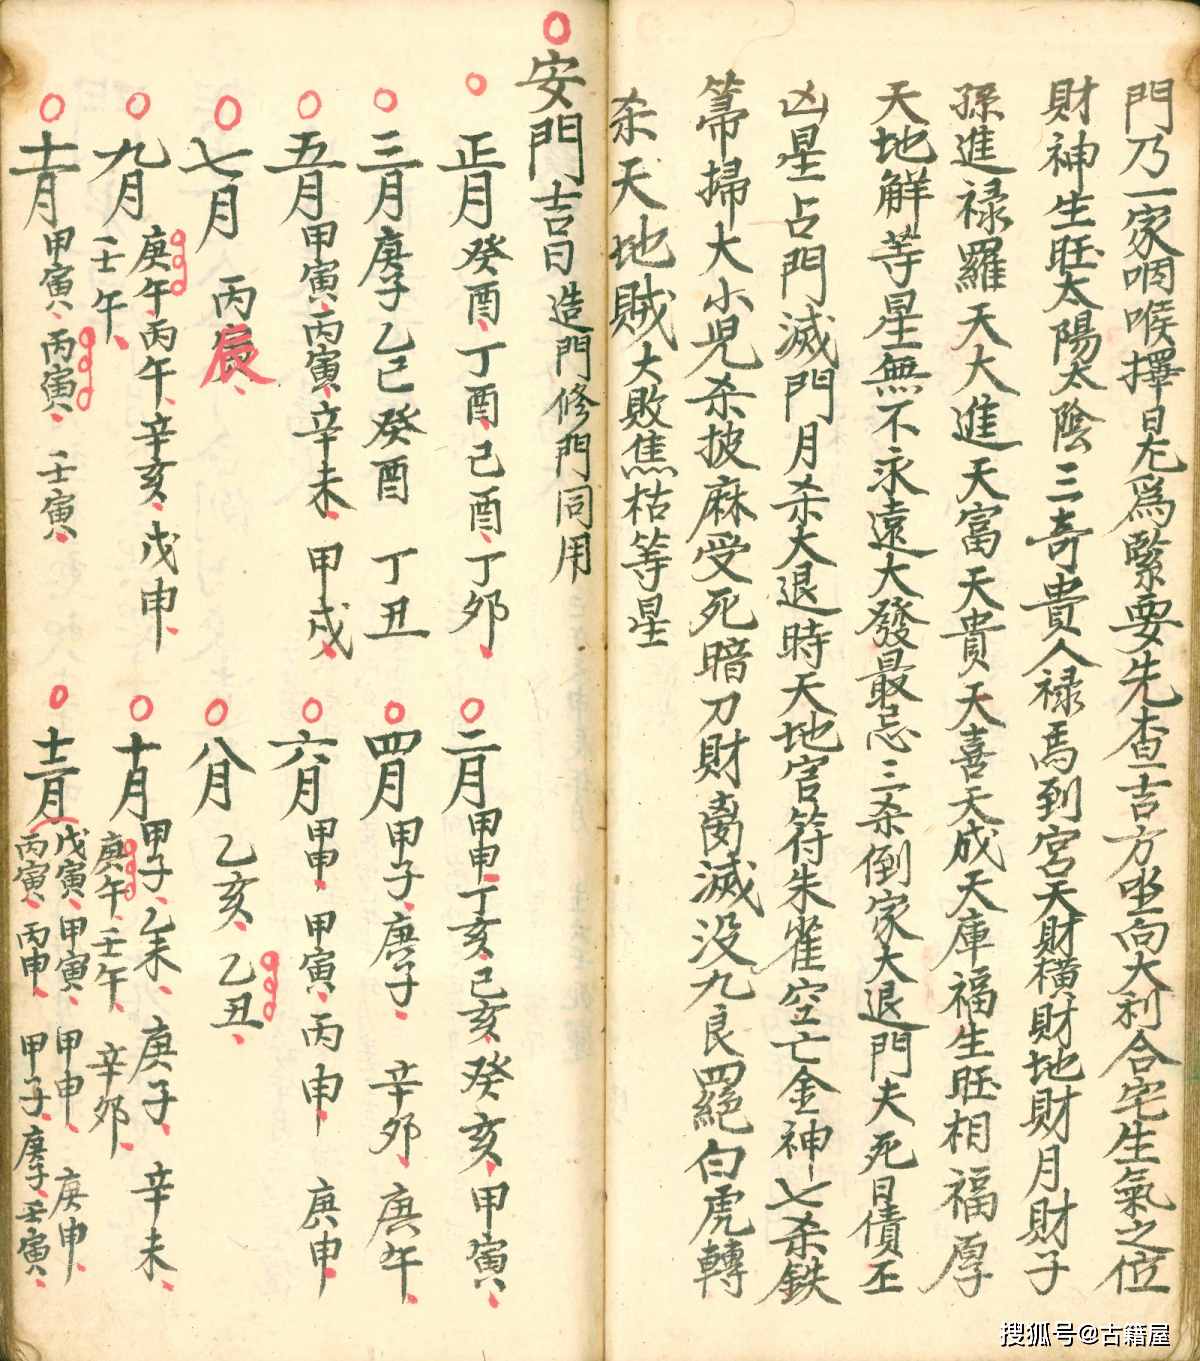 門乃一家咽喉擇日尤為緊要先查吉方坐向大利合宅生氣之位
財神生旺太陽太陰三奇貴人祿馬到宮天財橫財地財月財子
孫進祿羅天大進天富天貴天喜天成天庫福生旺相福厚
天地解等星無不永遠大發最忌三杀倒家大退門夫死日債丕
凶星占門滅門月杀大退時天地官符朱雀空亡金神七杀鉄
箒掃大小児杀披麻受死暗刀財离滅没九良四絕白虎轉
杀天地賊大敗焦枯等星
安門吉日造門修門同用
正月癸酉丁酉己酉丁卯
二月甲申丁亥己亥癸亥甲寅
三月庚子乙巳癸酉丁丑
四月甲子庚子辛卯庚午
五月甲寅丙寅辛未甲戌
六月甲申甲寅丙申庚申
七月丙辰
八月乙亥乙丑
九月庚午丙午辛亥戊申
壬午
十月甲子乙未庚子辛未
庚午壬午辛卯
十一月甲寅丙寅壬寅
十二月戊寅甲寅甲申庚申
丙寅丙申甲子庚子壬寅
搜狐号@古籍屋